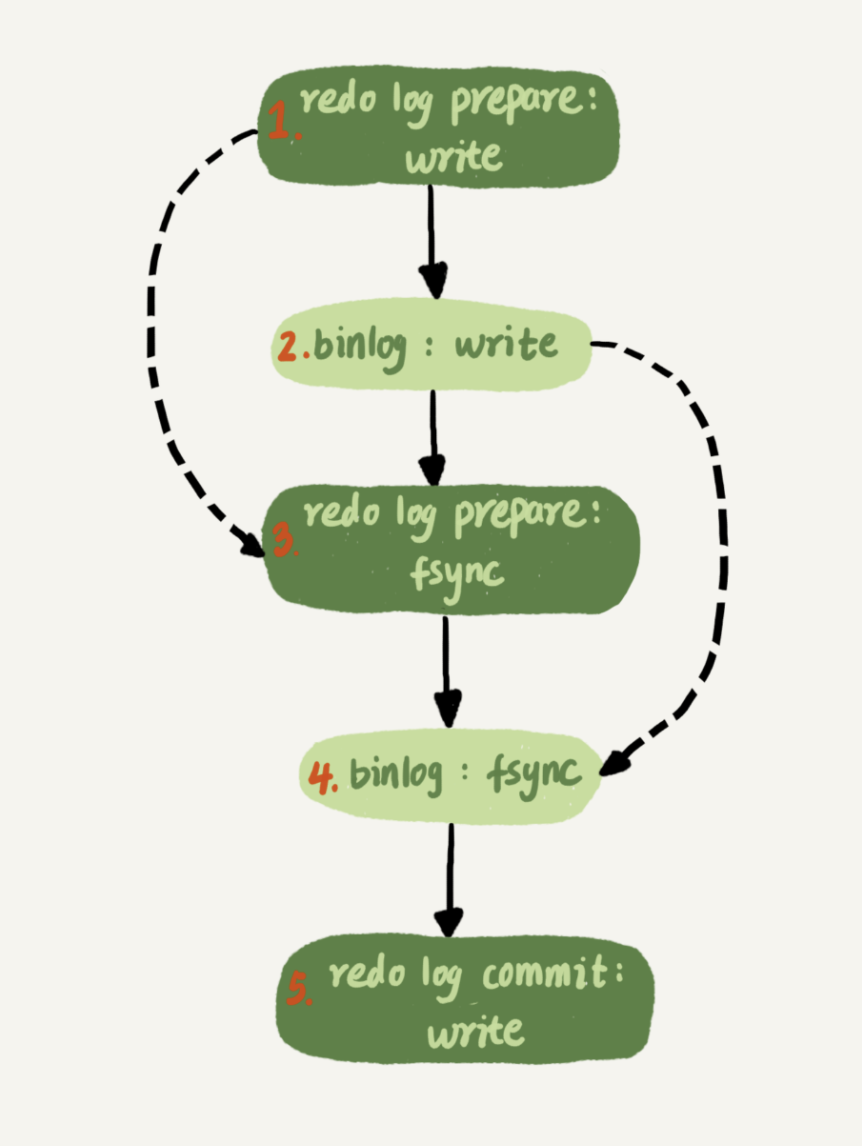 1. redo log prepare:
write
2. binlog : write
redo log prepare:
3.
fsync
4. binlog : fsync
5. redo log commit:
write